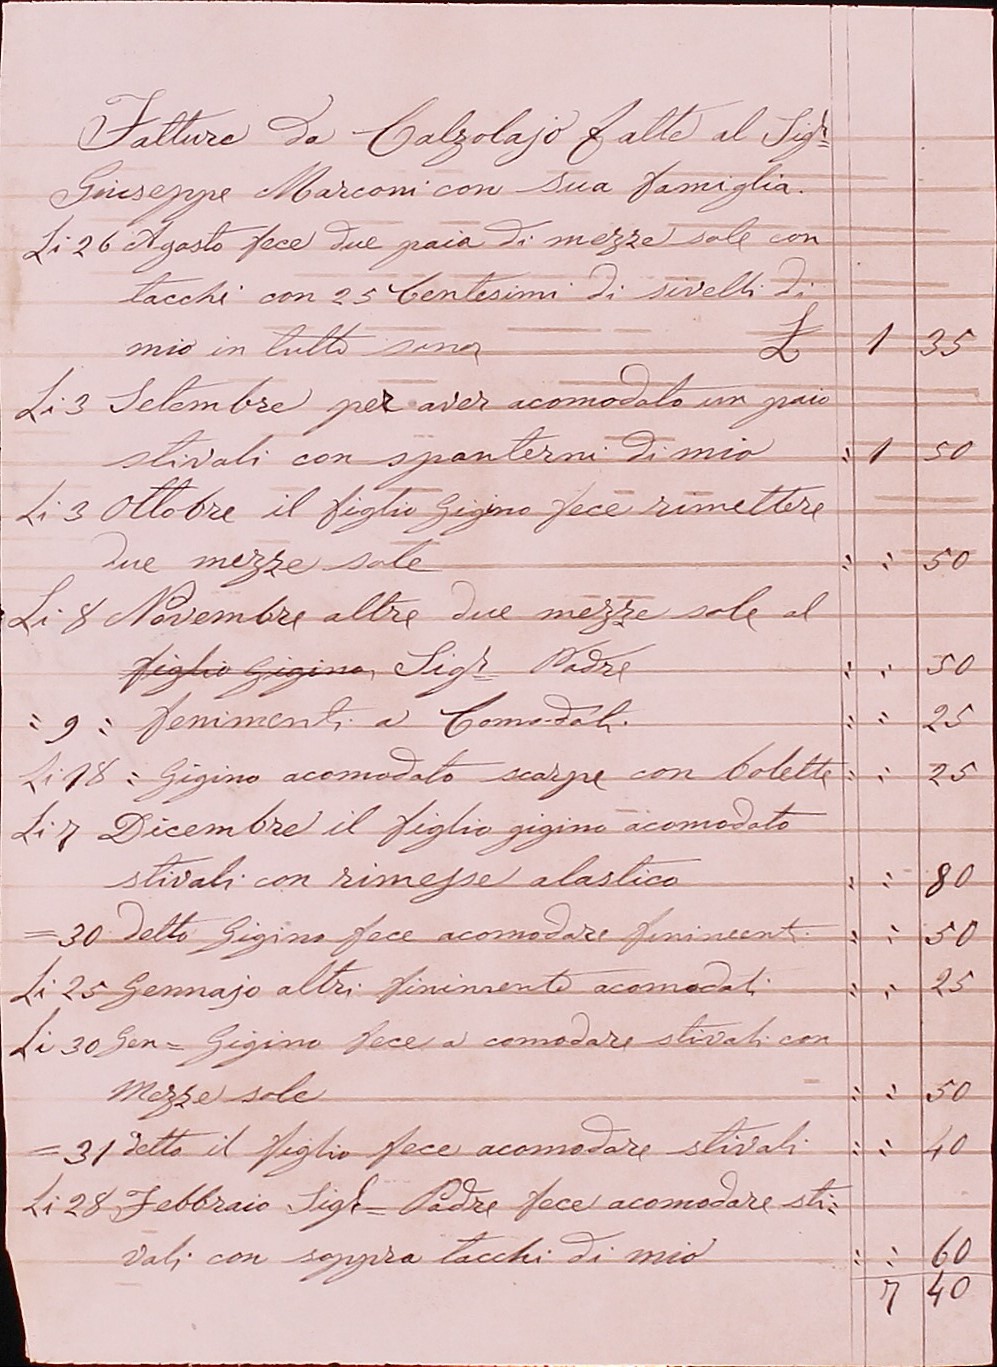 Fatture da Calzolajo fatte al Sigr
Giuseppe Marconi con sua famiglia.
Li 26 Agosto fece due paia di mezze sole con
tacchi con 25 Centesimi di sivelli di
mio in tutto sono £ 1 35
Li 3 Setembre per aver acomodato un paio
stivali con spanterni di mio " 1 50
Li 3 Ottobre il figlio Gigino fece rimettere
due mezze sole " " 50
Li 8 Novembre altre due mezze sole al
figlio Gigino, Sigr Padre " " 50
" 9 " fenimenti a Comodati " " 25
Li 18 " Gigino acomodato scarpe con bolette " " 25
Li 7 Dicembre il figlio gigino acomodato
stivali con rimesse alastico " " 80
= 30 detto Gigino fece acomodare " " 50
Li 25 Gennajo altri acomodati " " 25
Li 30 Gen= Gigino fece a comodare stivali con
Mezze sole " " 50
= 31 detto il figlio fece acomodare stivali " " 40
Li 28 Febbraio Sigr= Padre fece acomodare sti=
vali con soppra tacchi di mio " " 60
7 40